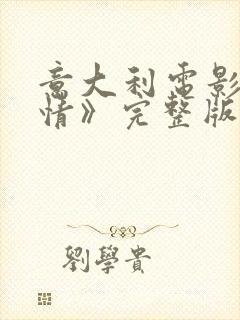 意大利电影
情》完整版
劉學貴